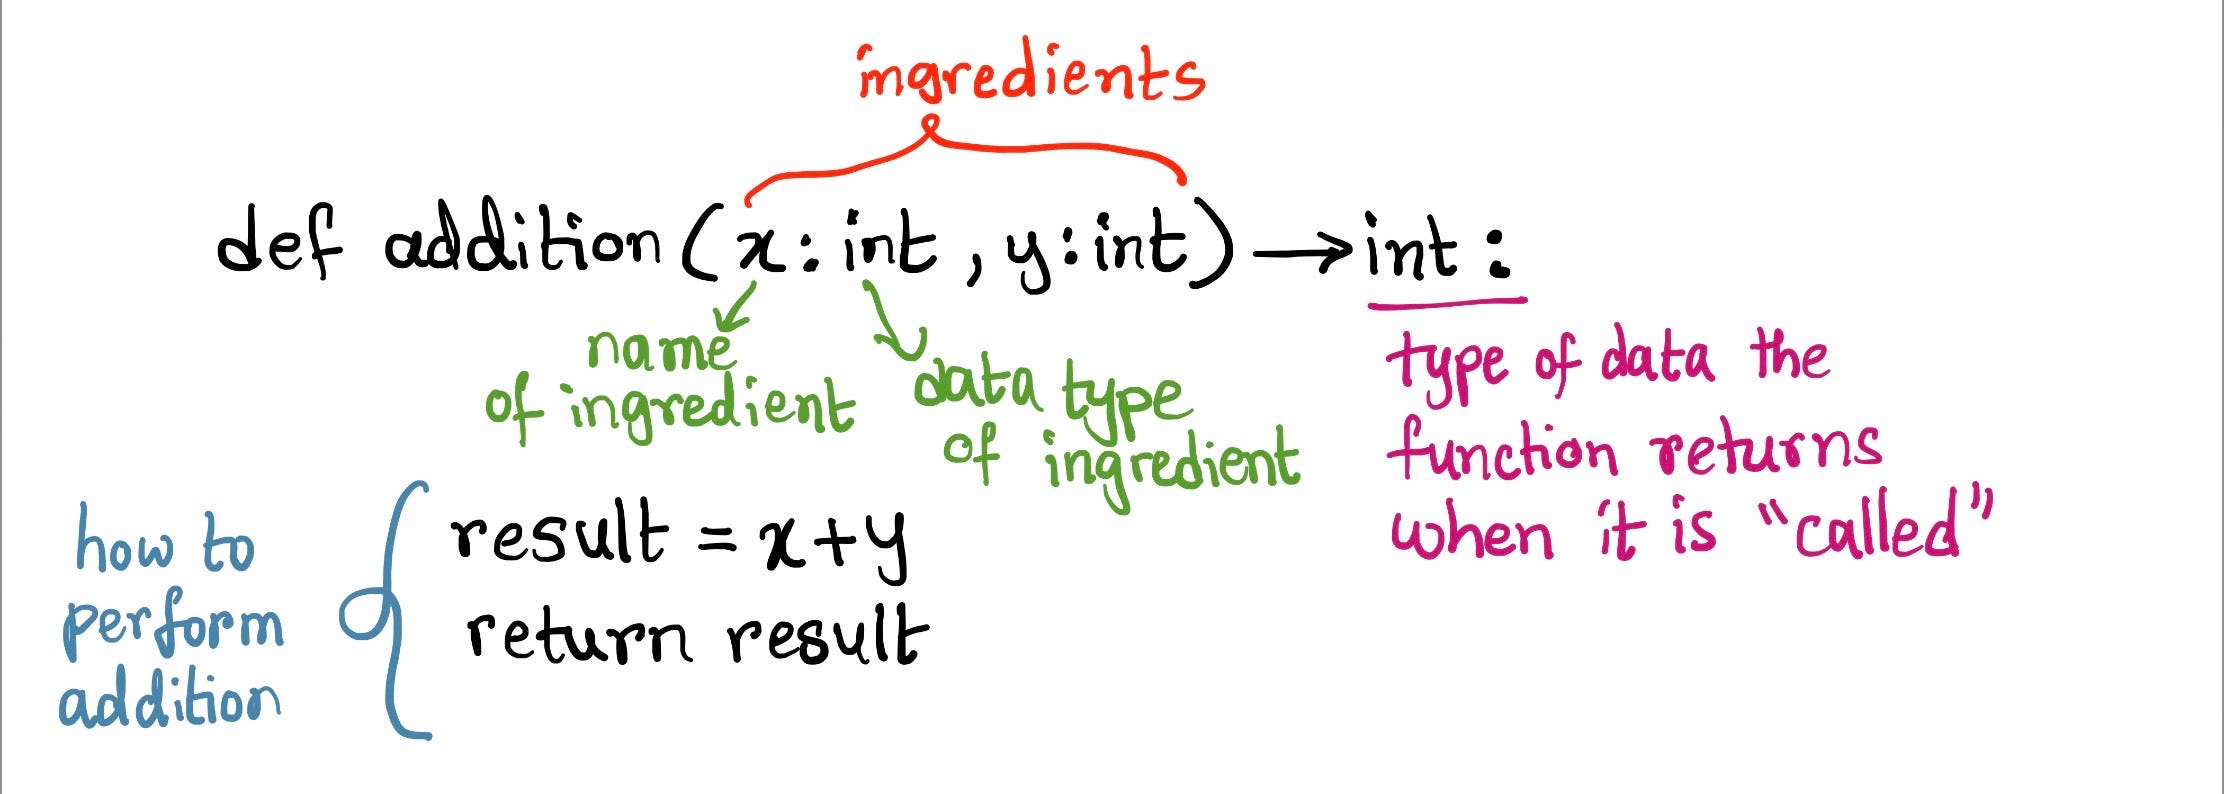 ingredients
def addition (x: int, y: int) → int:
name
of ingredient
data type
of ingredient
type of data the
function returns
when it is "called"
how to
perform
addition
result = x+y
return result